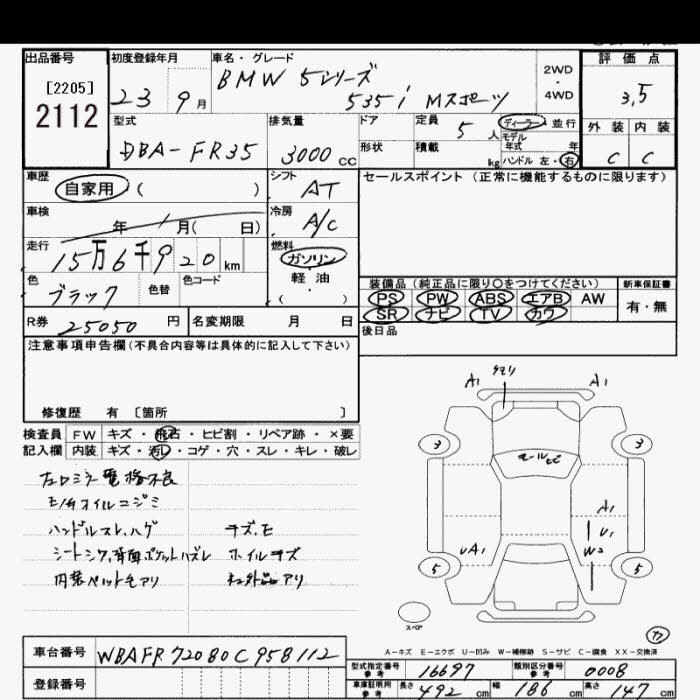 出品番号 初度登録年月 車名・グレード 2WD・4WD 評価点
[2205]
2112
23 9月
BMW 5シリーズ
535i Mスポーツ
3.5
型式 排気量 ドア 定員 5人 ディーラー 並行 外装 内装
モデル年式 年
DBA-FR35 3000cc 形状 積載 kg ハンドル 左・右 C C
車歴 自家用 ( ) シフト AT セールスポイント (正常に機能するものに限ります)
車検 年 月( 日) 冷房 A/C
走行 15万6千920km 燃料 ガソリン
軽油
・
( )
色 ブラック 色替 色コード
装備品 (純正品に限り○をつけてください) 新車保証書
PS PW ABS エアB AW 有・無
SR ナビ TV カワ
R券 25050円 名変期限 月 日 後日品
注意事項申告欄(不具合内容等は具体的に記入して下さい)
修復歴 有 〔箇所 〕
検査員 FW キズ・飛石・ヒビ割・リペア跡・×要
記入欄 内装 キズ・汚レ・コゲ・穴・スレ・キレ・破レ
左ロミラー電格不良
オイルニジミ
ハンドルスレ、ハゲ キズ、E
シートシワ、背面ポケットハズレ ホイルキズ
内装ペット毛アリ 社外品アリ
クモリ
A1 A1
3 3
モールヒビ
A1
U1
UA1 W2
5 5
スペア
カ
A-キズ E-エクボ U-凹み W-補修跡 S-サビ C-腐食 XX-交換済
車台番号 WBAFR72080C958112
登録番号
型式指定番号 参考 16697 類別区分番号 参考 0008
車庫証明用 参考 長さ 492cm 幅 186cm 高さ 147cm